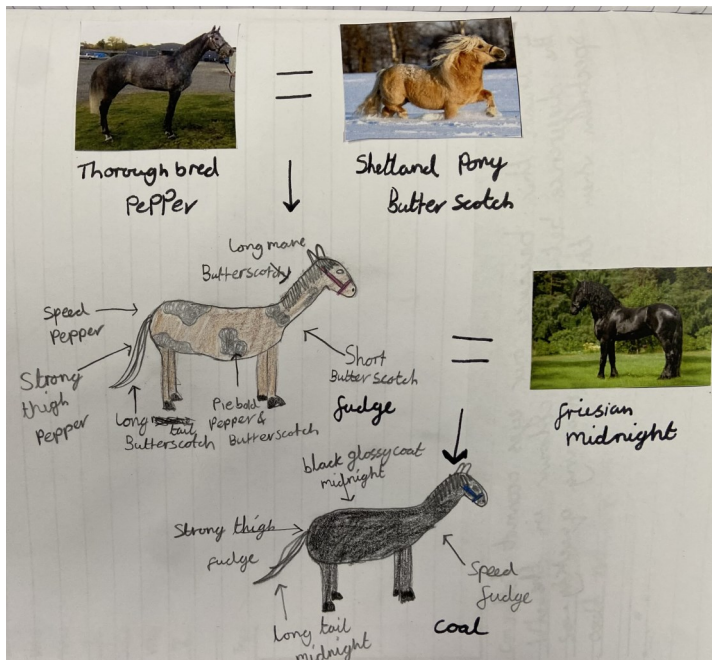 Thorough bred
Pepper
Shetland Pony
Butterscotch
Long mane
Butterscotch
Speed
Pepper
Strong
thigh
Pepper
Long
tail
Butterscotch
Piebald
Pepper &
Butterscotch
Short
Butterscotch
fudge
friesian
midnight
black glossy coat
midnight
Strong thigh
fudge
Speed
fudge
long tail
midnight
coal